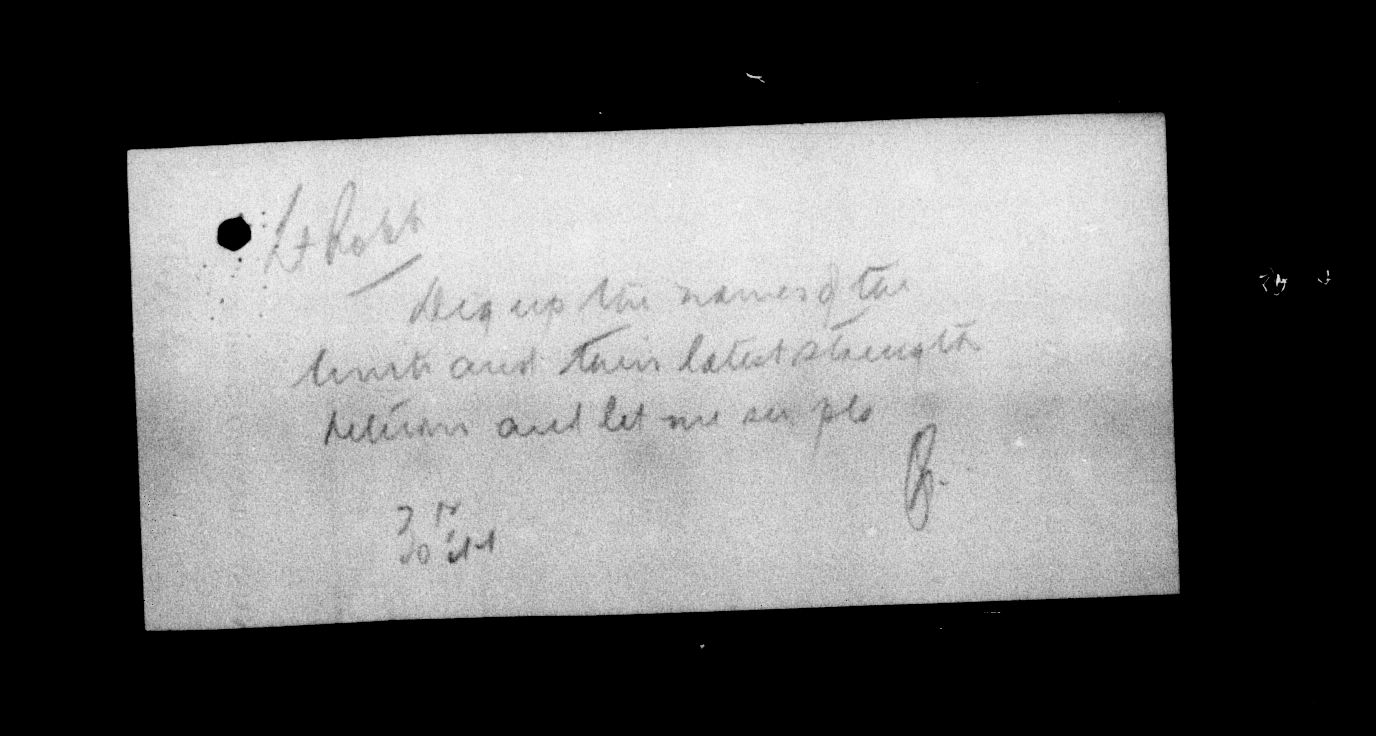 Lt Robb
Dig up the names of the
units and their latest strength
returns and let me see pls